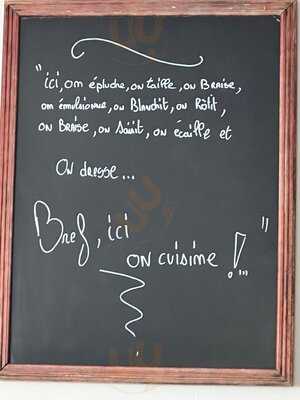 "ici, on épluche, on taille, on Braise,
on émulsionne, on Blanchit, on Rôtit,
on Braise, on Saisit, on écaille et
On dresse...
Bref, ici
on cuisine !..."